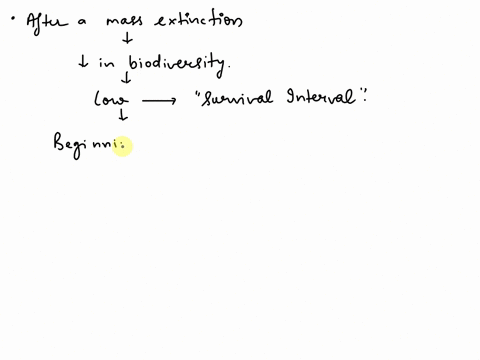 • After a mass extinction
↓
↓ in biodiversity.
↓
Low → "Survival Interval".
↓
Beginni